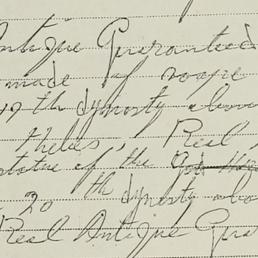 Antique Guaranteed
made of
19 th dynasty
thebes Real
statue of the
20 th dynasty
Real Antique